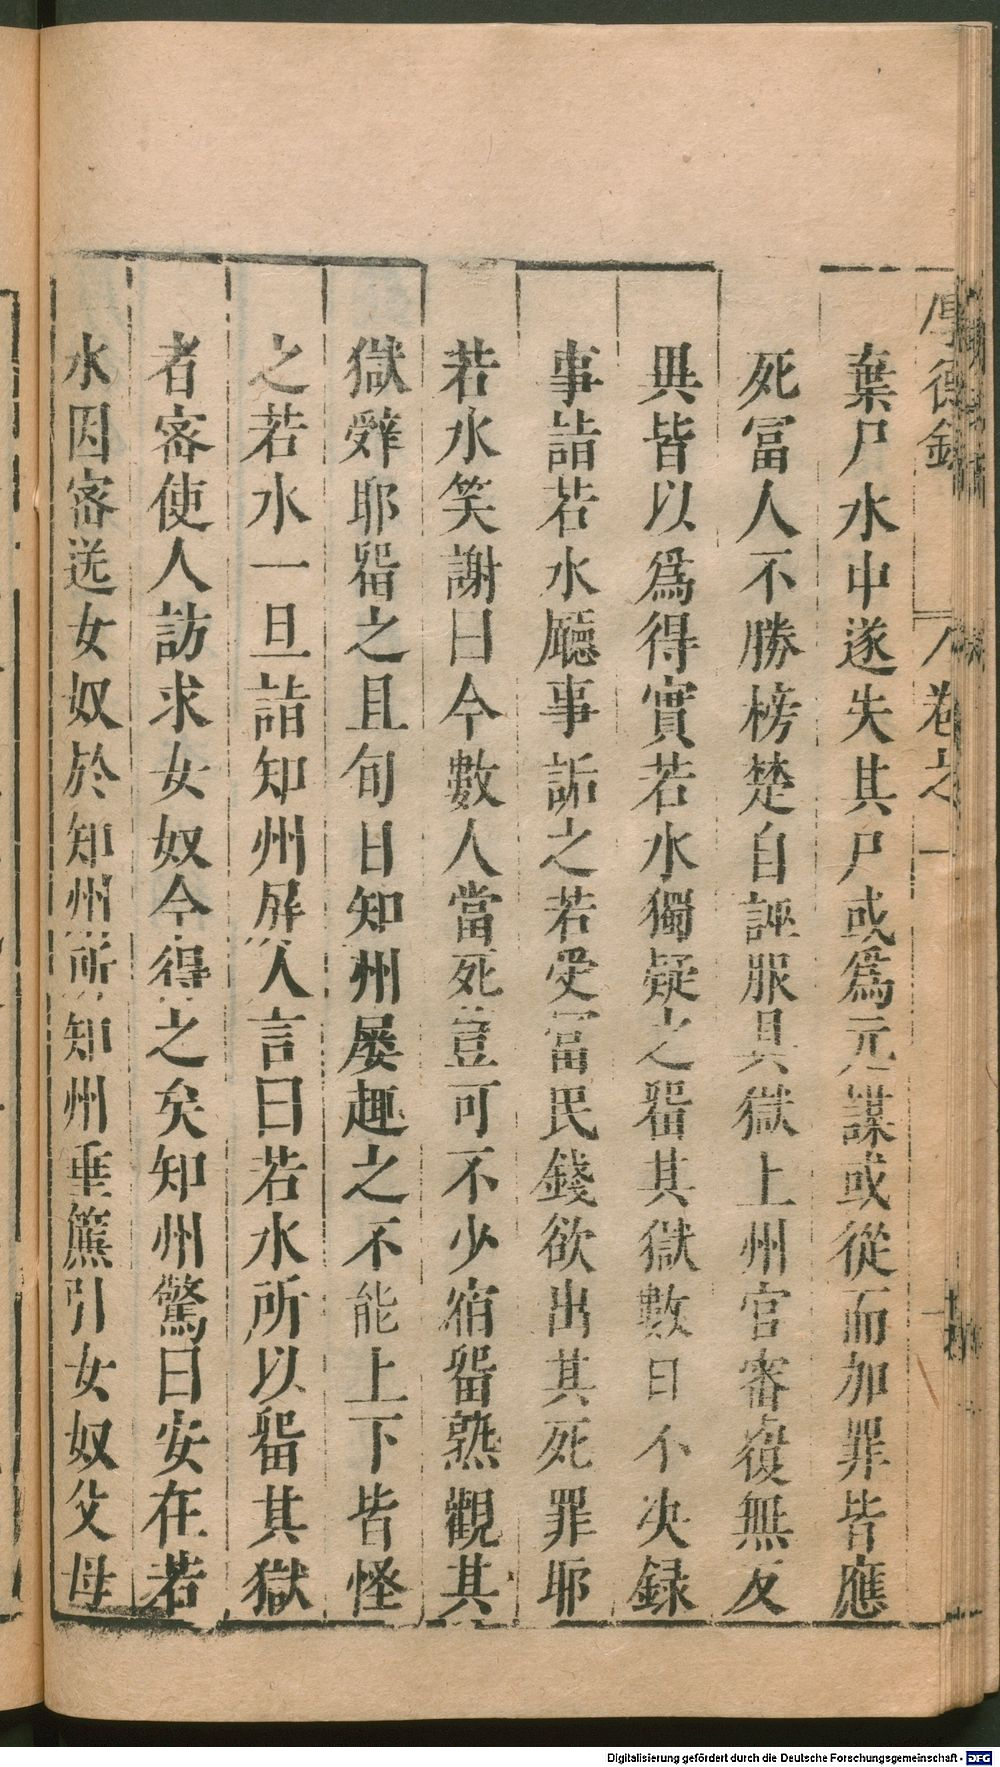 厚德録 卷之一
棄尸水中遂失其尸或爲元謀或從而加罪皆應
死冨人不勝榜楚自誣服具獄上州官審復無反
異皆以爲得實若水獨疑之畱其獄數日不决録
事詣若水廳事詬之若受冨民錢欲出其死罪耶
若水笑謝曰今數人當死豈可不少宿畱熟觀其
獄辤耶畱之且旬日知州屡趣之不能上下皆怪
之若水一旦詣知州屏人言曰若水所以畱其獄
者宻使人訪求女奴今得之矣知州驚曰安在若
水因宻送女奴於知州所知州垂簾引女奴父母
Digitalisierung gefördert durch die Deutsche Forschungsgemeinschaft - DFG